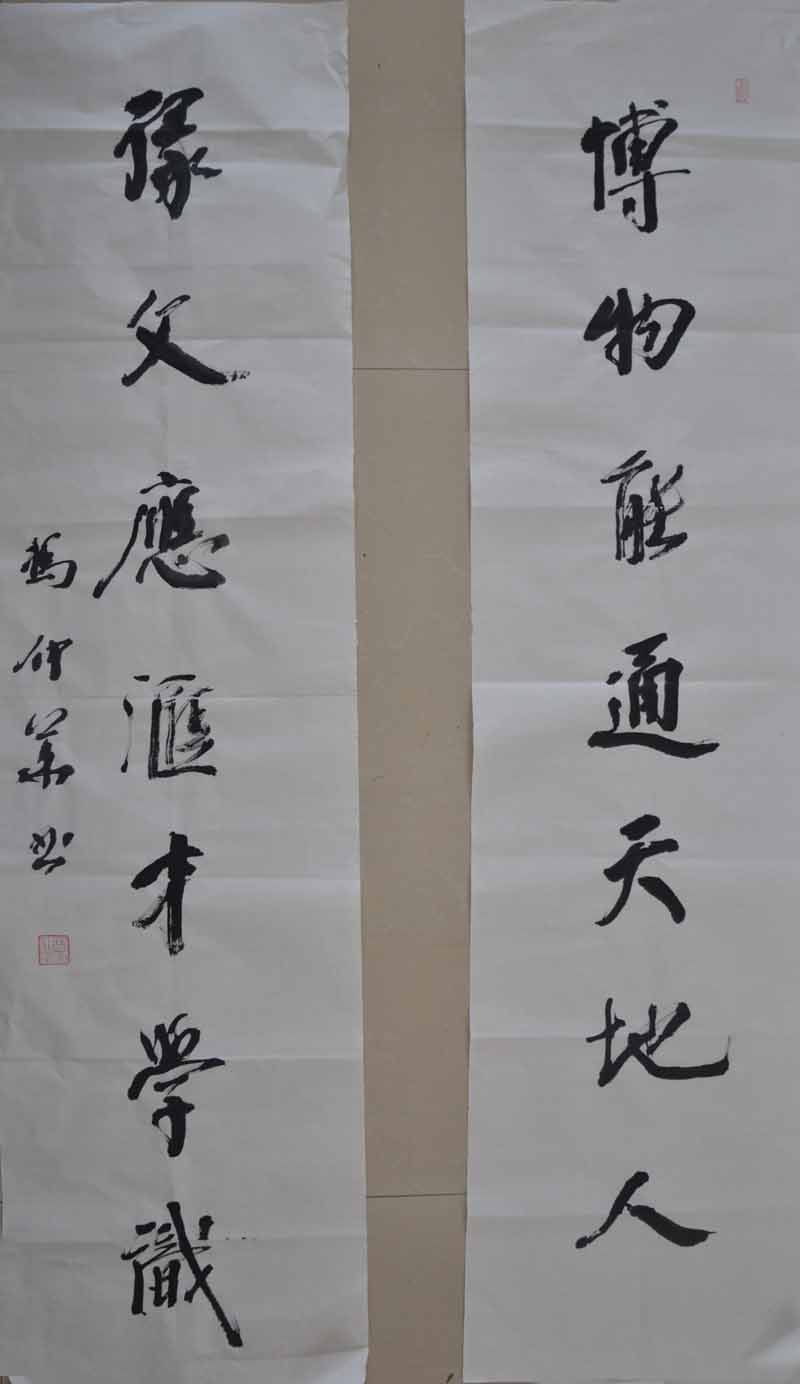 博物能通天地人
文應滙才學識
仲书